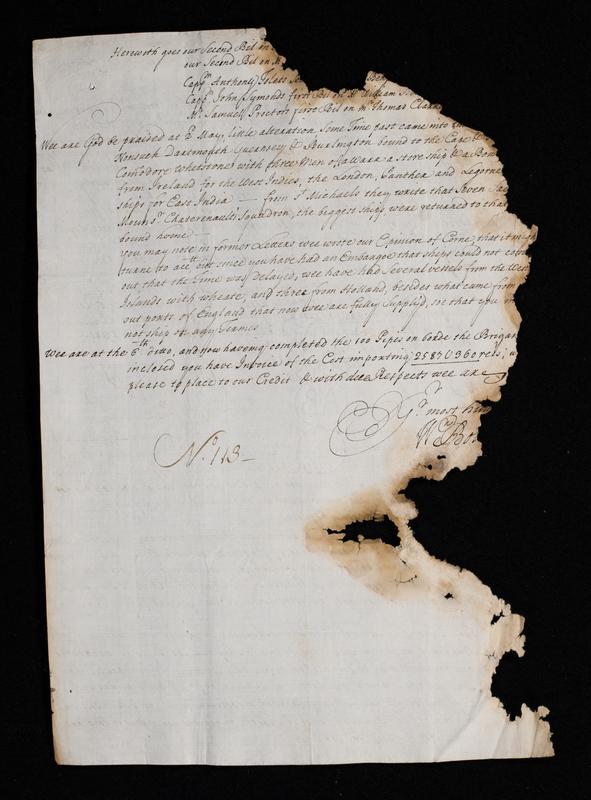 Herewith goes our Second Bil on
our Second Bil on
Capp. Anthony
Capp. John Symonds first Bil on Mr William
Mr. Samuel Proctors first Bil on mr Thomas Clark
Wee are God be praised at 2 May, little alteration Some Time past came into
Nonsuch Dartmouth Guernsey & Burlington bound to the Cape
Comodore Whetstone with three Men of Warr a store ship & a Bom
from Ireland for the West Indies, the London, Panther and Legorne
ships for East India — from St Michaels they write that Seven Sail
Mounsr. Chaterenaults Squadron, the biggest ships were returned to that
bound home —
you may note in former Letters wee wrote our Opinion of Corne, that it might
turne to acctt but since you have had an Embargoe that ships could not come
out that the time was delayed, wee have had Several vessels from the West
Islands with wheate, and three from Holland, besides what came from
out ports of England that now wee are fully Supplyd, soe that you
not ship on any Termes
Wee are at the 6th ditto, and now having completed the 100 Pipes on borde the Brigan
inclosed you have Invoice of the Cost importing 2587U360 rs
please to place to our Credit & with due Respects wee are
Yr. most hum
No. 113 —